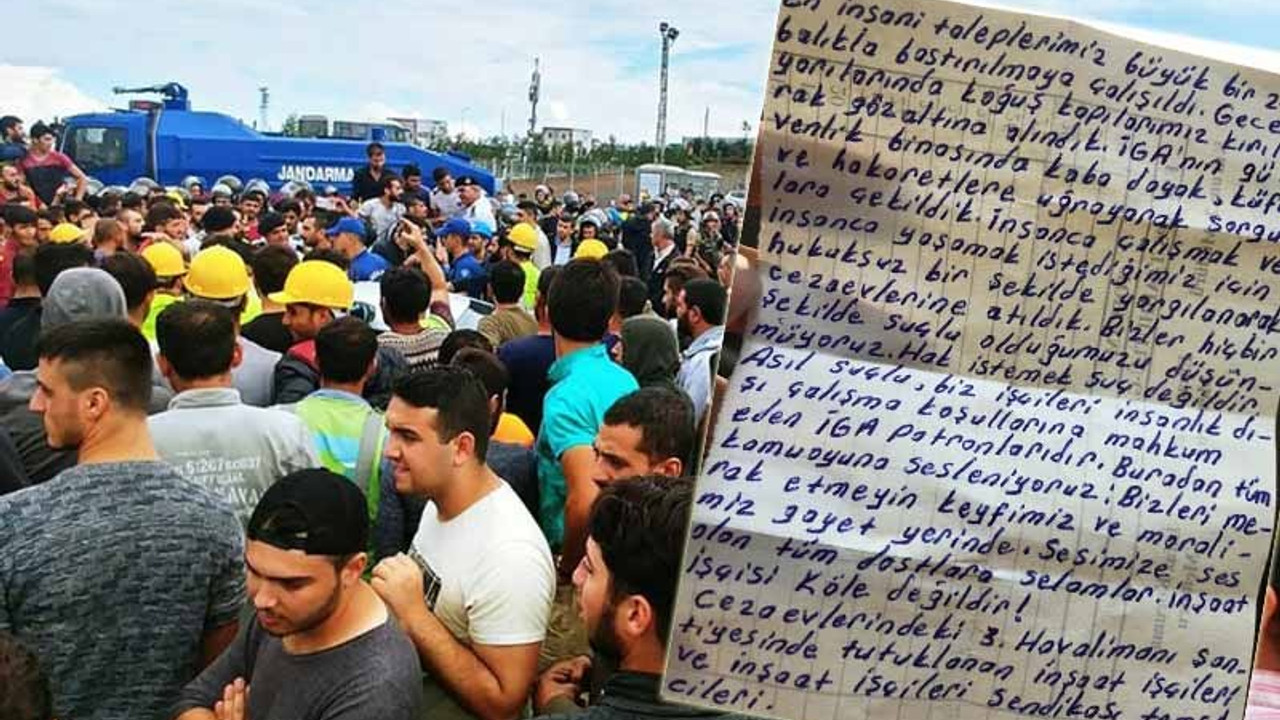 JANDARMA
En insani taleplerimiz büyük bir z
balıkla bastırılmaya çalışıldı. Gece
yarılarında koğuş kapılarımız kırıl
rak gözaltına alındık. İGA'nın gü
venlik binasında kaba dayak, küf
ve hakaretlere uğrayarak sorgu
lara çekildik. İnsanca çalışmak ve
insanca yaşamak istediğimiz için
hukuksuz bir şekilde yargılanarak
cezaevlerine atıldık. Bizler hiçbir
şekilde suçlu olduğumuzu düşün-
müyoruz. Hak istemek suç değildir
Asıl suçlu, biz işçileri insanlık dı-
şı çalışma koşullarına mahkum
eden İGA patronlarıdır. Buradan tüm
kamuoyuna sesleniyoruz: Bizleri me-
rak etmeyin keyfimiz ve morali-
miz gayet yerinde. Sesimize, ses
olan tüm dostlara selamlar. İnşaat
işçisi Köle değildir!
Cezaevlerindeki 3. Havalimanı şan-
tiyesinde tutuklanan inşaat işçileri
ve inşaat işçileri sendikası
cileri.